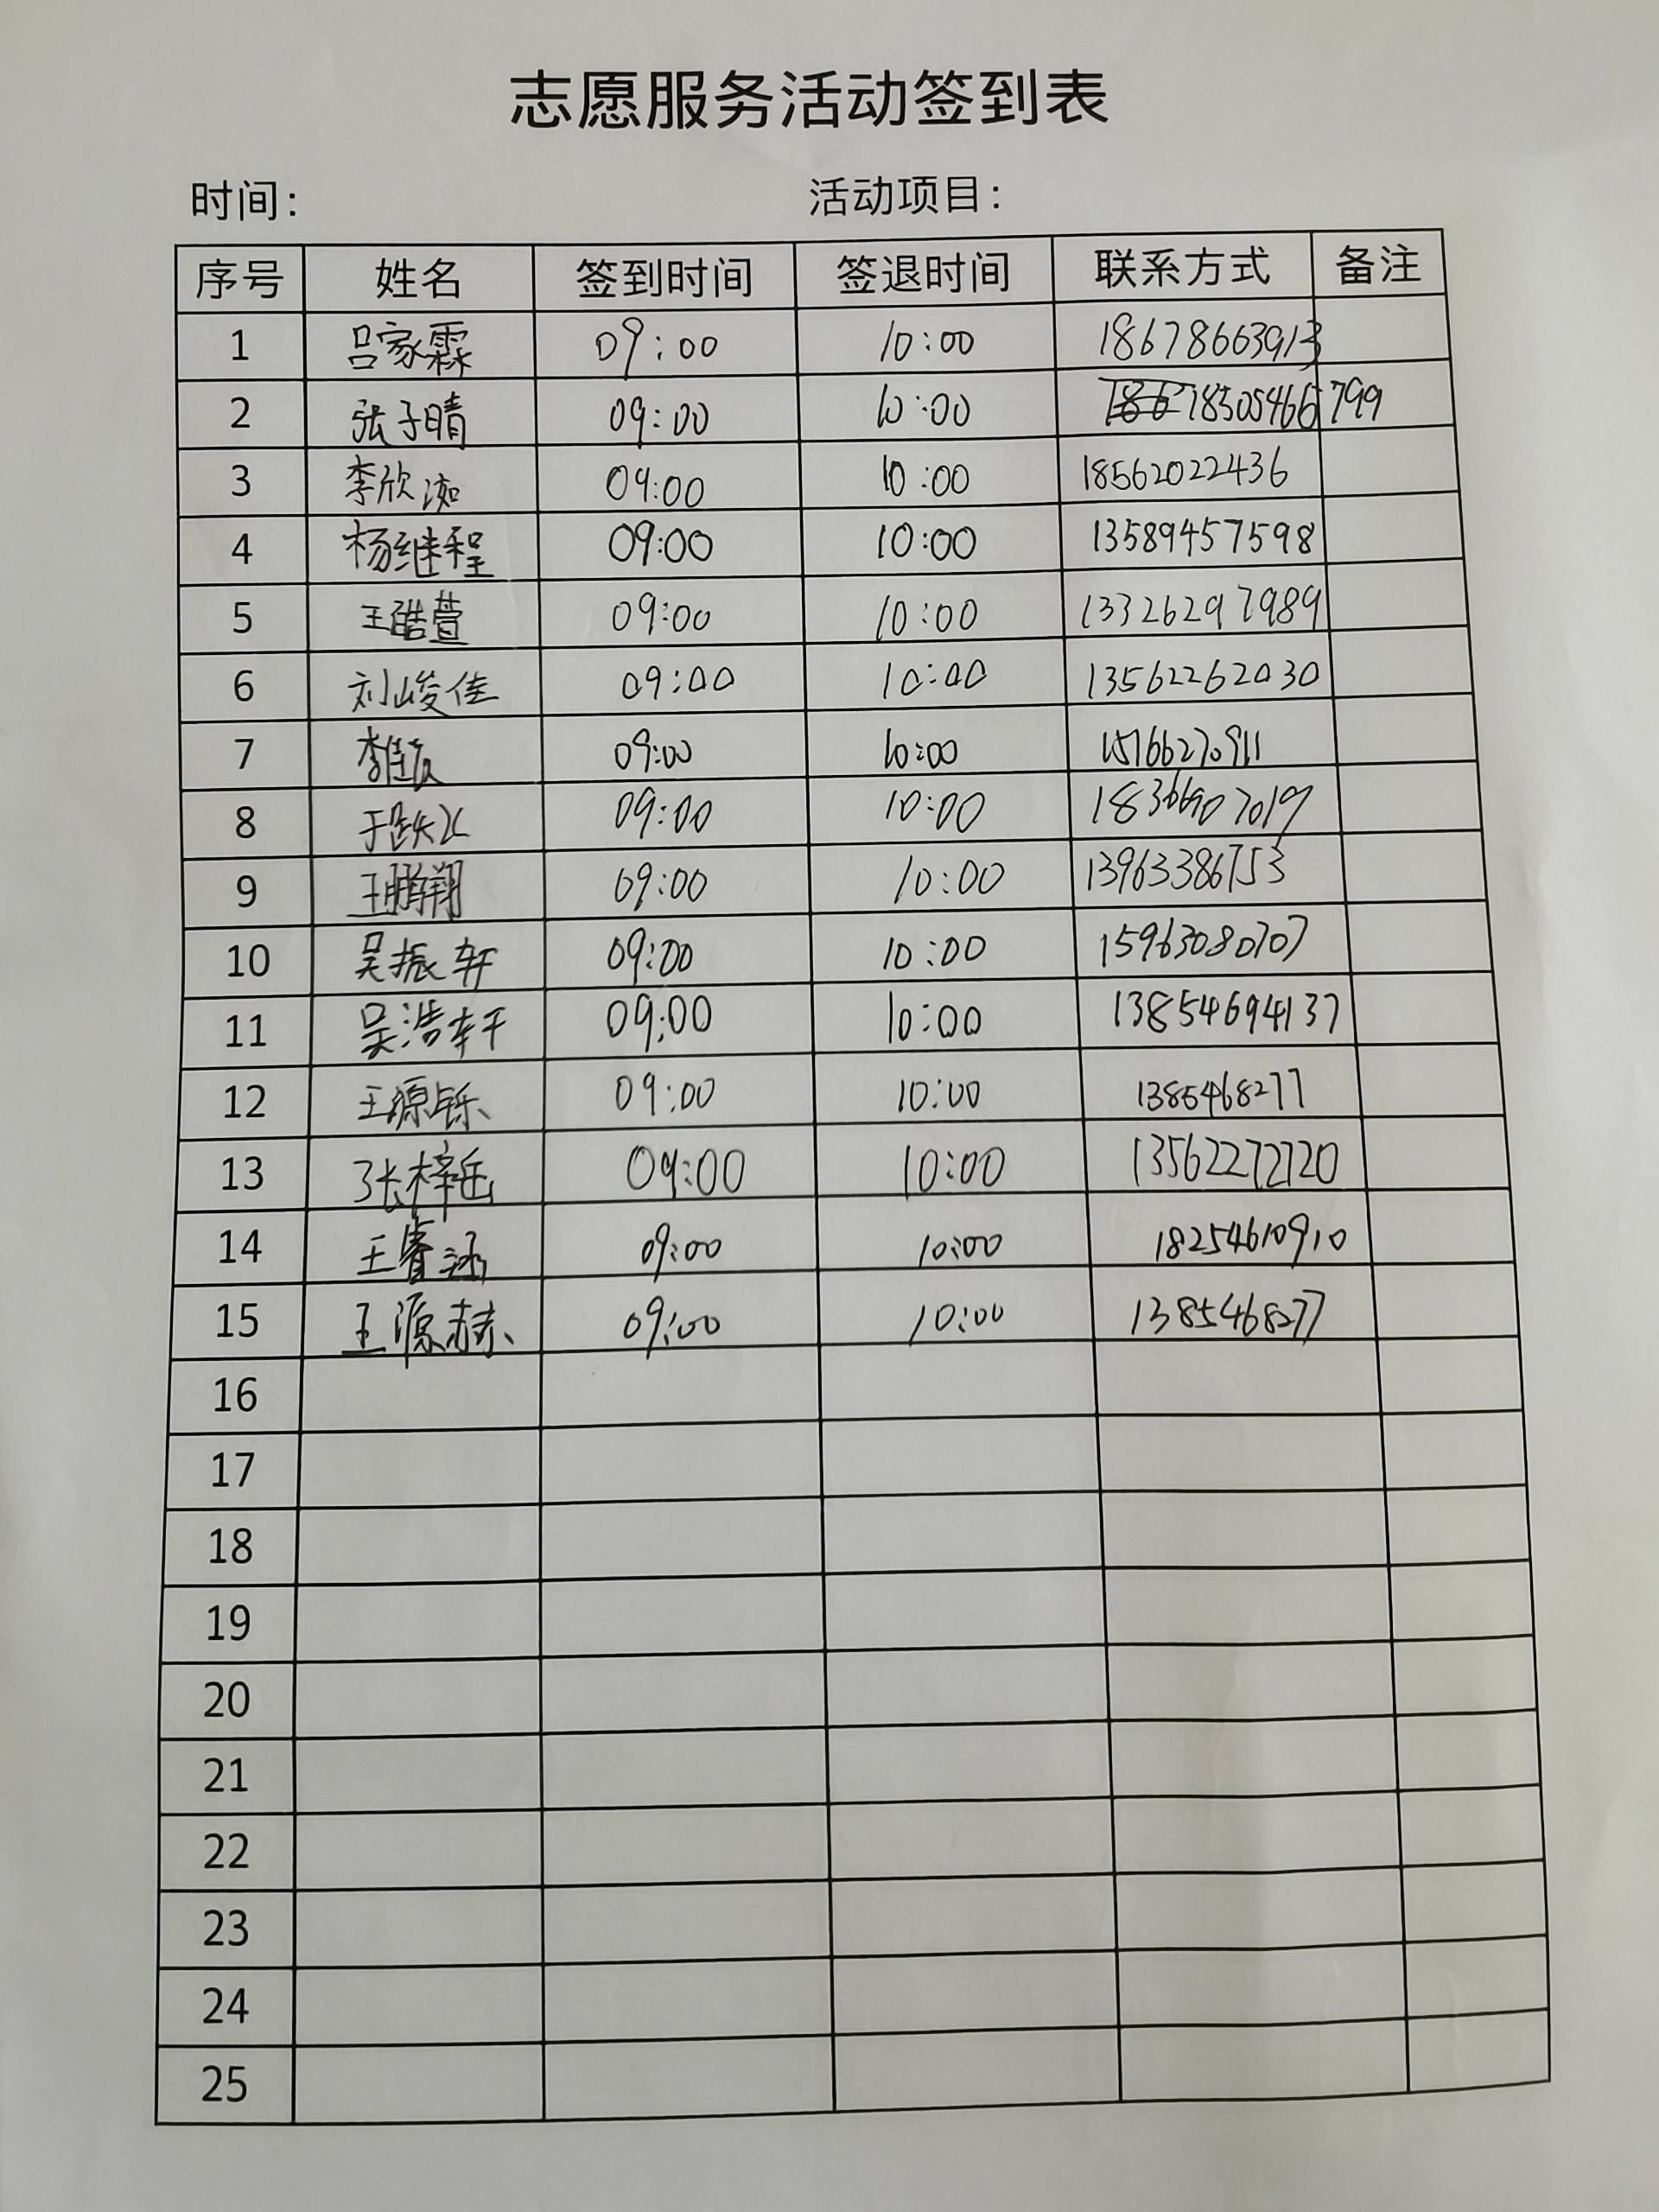 志愿服务活动签到表
时间： 活动项目：
序号 姓名 签到时间 签退时间 联系方式 备注
1 吕家霖 09:00 10:00 18678663913
2 张子晴 09:00 10:00 18505466799
3 李欣 09:00 10:00 18562022436
4 杨继程 09:00 10:00 13589457598
5 王皓萱 09:00 10:00 13326297989
6 刘峻佳 09:00 10:00 13562262030
7 李佳 09:00 10:00 15166270911
8 于跃 09:00 10:00
9 王鹏翔 09:00 10:00 13963386753
10 吴振轩 09:00 10:00 15963080707
11 吴浩轩 09:00 10:00 13854694137
12 王源铄 09:00 10:00 1385468277
13 张梓岳 09:00 10:00 13562272720
14 王睿涵 09:00 10:00 18254610910
15 王源赫 09:00 10:00 1385468277
16
17
18
19
20
21
22
23
24
25